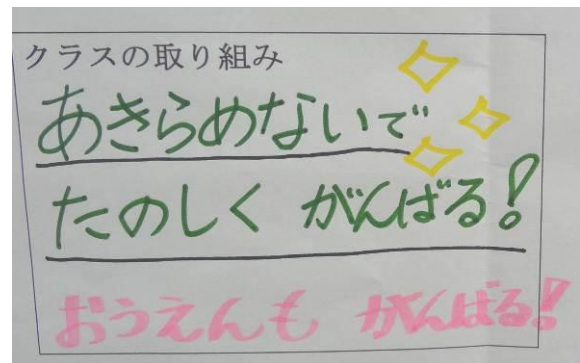 クラスの取り組み
あきらめないで
たのしく がんばる!
おうえんも がんばる!